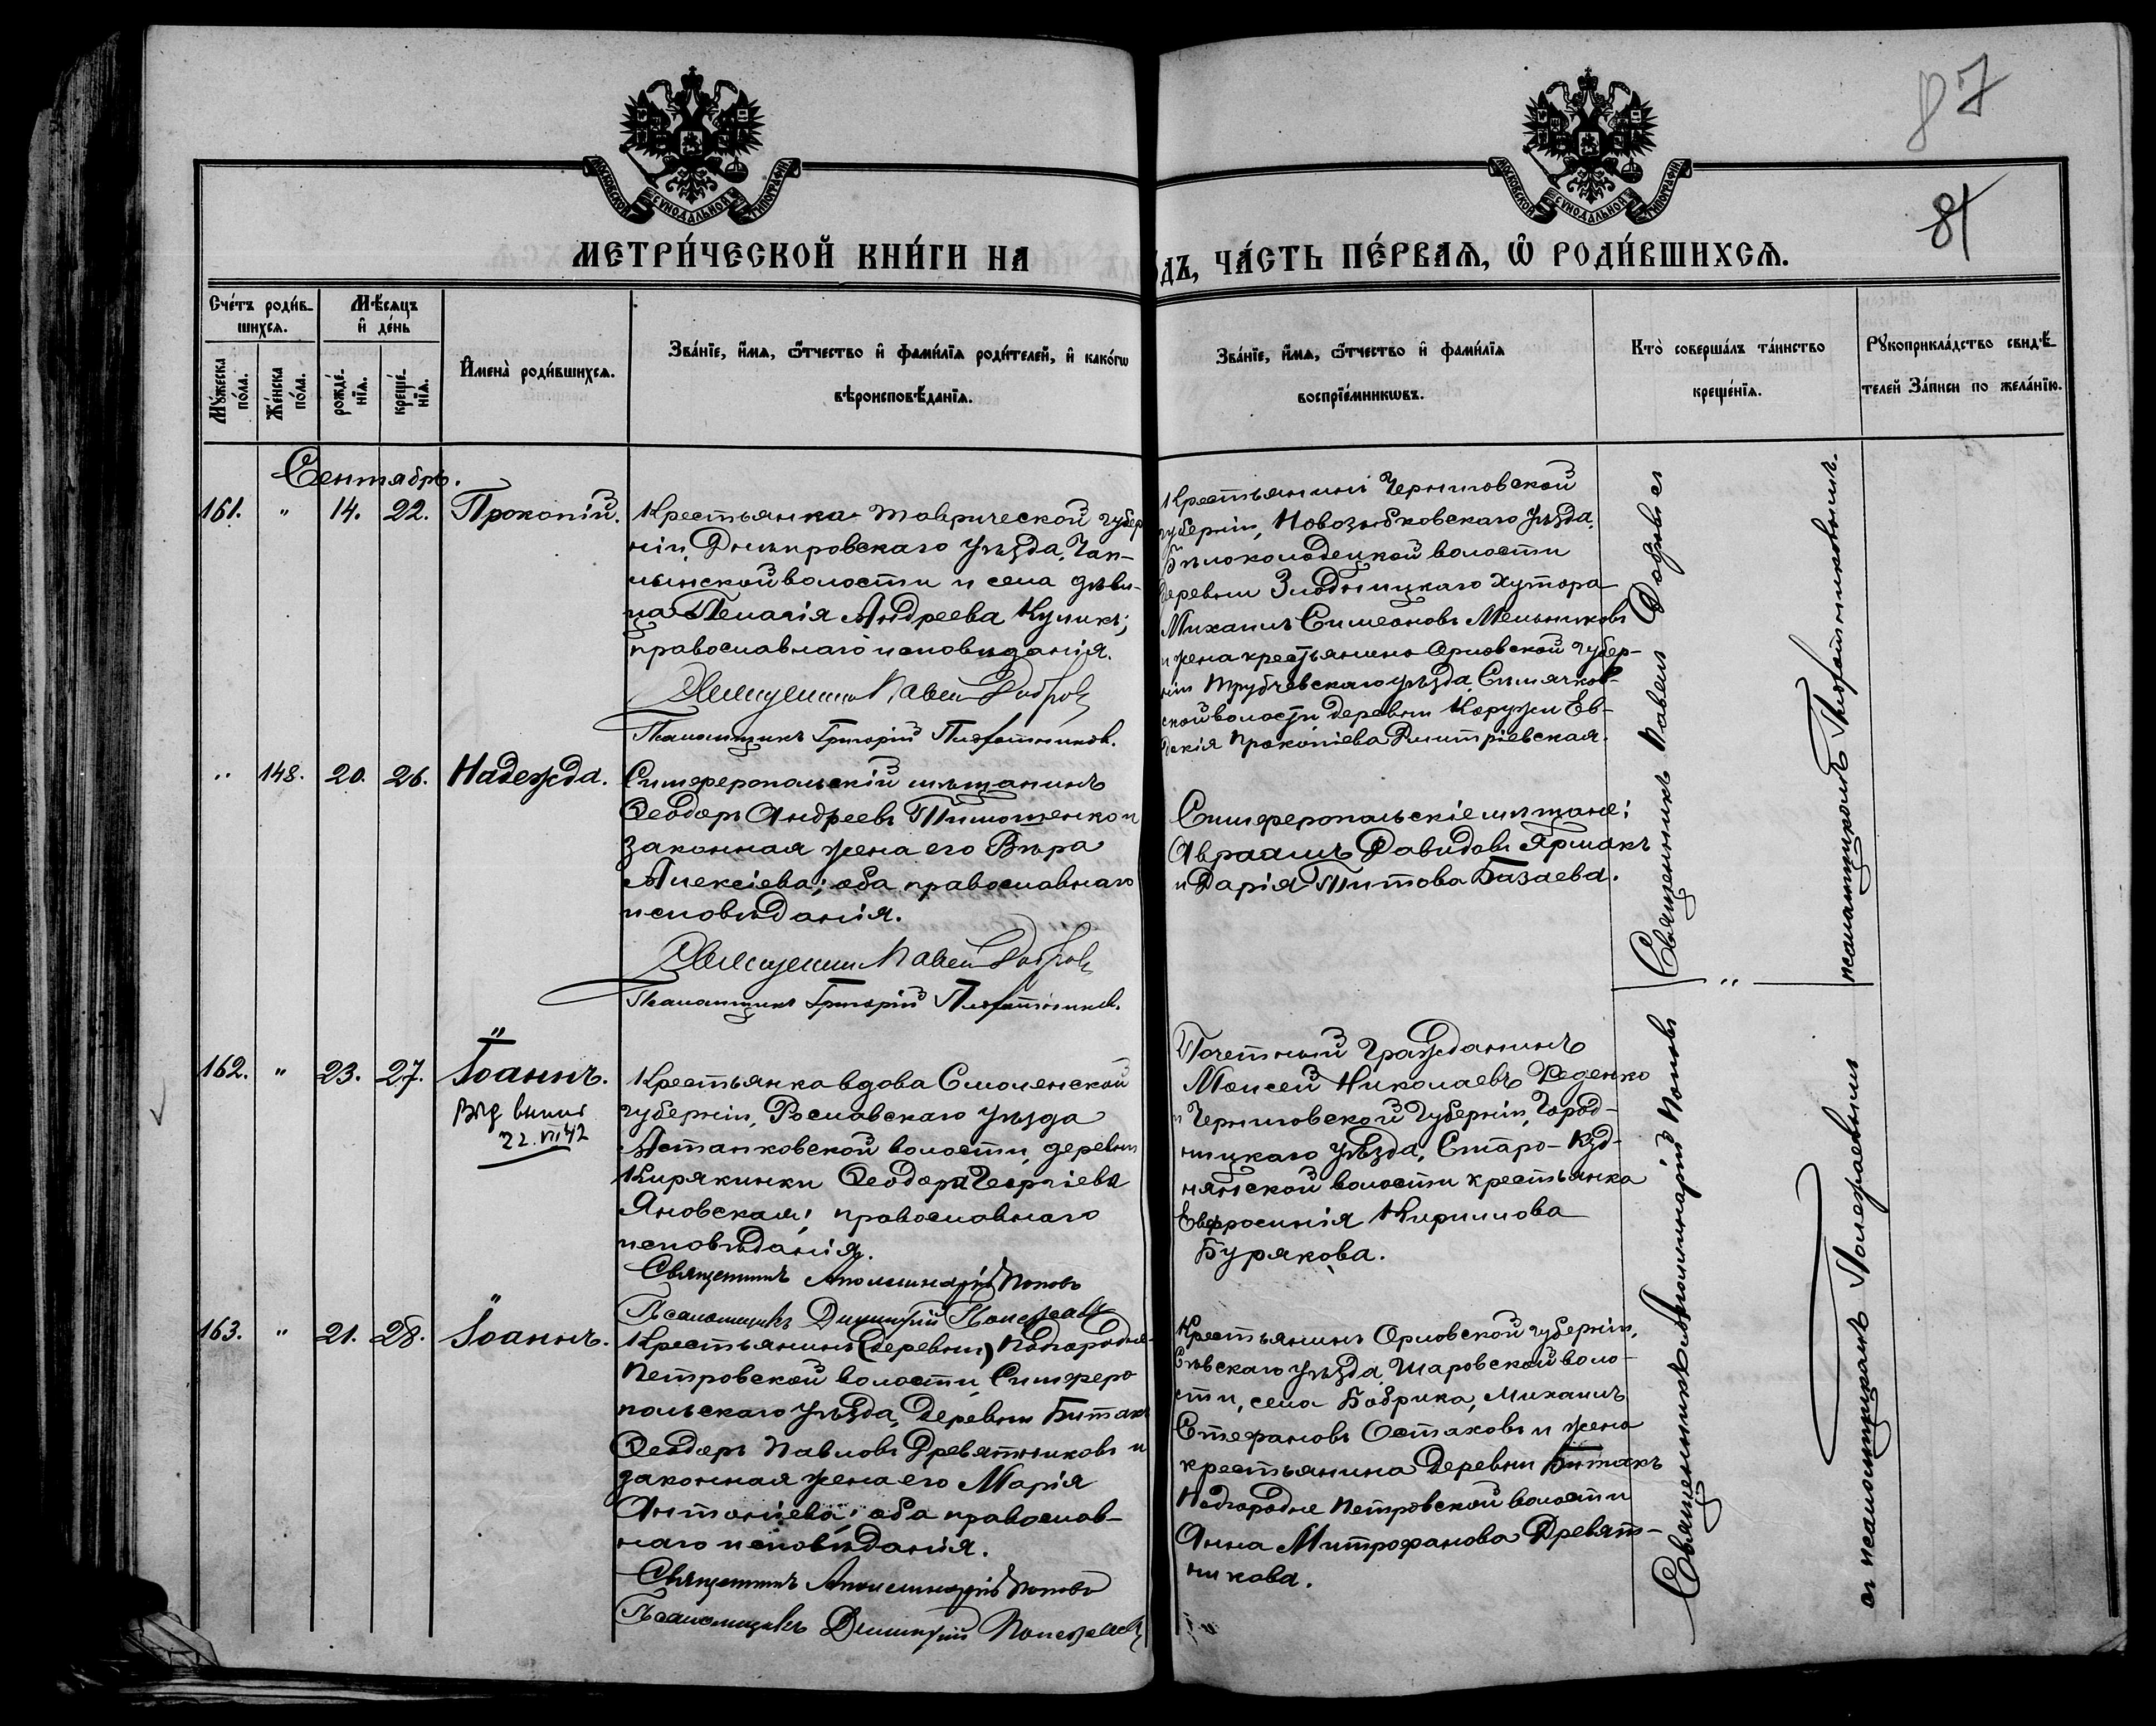 87
81
МОСКОВСКОЙ СѴНОДАЛЬНОЙ ТИПОГРАФІИ
МОСКОВСКОЙ СѴНОДАЛЬНОЙ ТИПОГРАФІИ
МЕТРИ́ЧЕСКОЙ КНИ́ГИ НА
ДЪ, ЧА́СТЬ ПЕ́РВАѦ, Ѿ РОДИ́ВШИХСѦ.
Сче́тъ роди́в-
шихсѧ.
Мꙋ́жеска по́ла.
Же́нска по́ла.
Мѣ́сѧцъ
и҆ де́нь
рожде́-
нїѧ.
креще́-
нїѧ.
И҆мена̀ роди́вшихсѧ.
Зва́нїе, и҆́мѧ, ѻ҆́тчество и҆ фами́лїѧ роди́телей, и҆ како́гѡ
вѣроисповѣ́данїѧ.
Зва́нїе, и҆́мѧ, ѻ҆́тчество и҆ фами́лїѧ
воспрїе́мникѡвъ.
Кто̀ соверша́лъ та́инство
креще́нїѧ.
Рꙋкоприкла́дство свидѣ́-
телей за́писи по жела́нїю.
Сентябрь.
161. " 14. 22. Прокопій.
Крестьянка Таврической губер
ніи, Днѣпровскаго уѣзда, Чап-
лынской волости и села дѣви-
ца Пелагія Андреева Кулик;
православнаго исповѣданія.
Священникъ Павелъ Добровъ
Псаломщикъ Григорій Плотниковъ.
Крестьянинъ Черниговской
губерніи, Новозыбковскаго уѣзда,
Бѣлоколодецкой волости
деревни хутора
Михаилъ Симеоновъ Мельниковъ
и жена крестьянина Орловской губер-
ніи Трубчевскаго уѣзда,
ской волости деревни Ев-
докія Прокопіева Димитріевская.
Священникъ Павелъ Добровъ съ
псаломщикомъ Плотниковымъ.
" 148. 20. 26. Надежда.
Симферопольскій мѣщанинъ
Ѳеодоръ Андреевъ Тимошенко и
законная жена его Вѣра
Алексіева; оба православнаго
исповѣданія.
Священникъ Павелъ Добровъ
Псаломщикъ Григорій Плотниковъ.
Симферопольскіе мѣщане:
Авраамъ Давидовъ Ярмакъ
и Дарія Титова Базаева.
162. " 23. 27. Іоаннъ.
22.VII 42
Крестьянка вдова Смоленской
губерніи, Рославскаго уѣзда
Астапковской волости, деревни
Кирякинки Ѳеодора Георгіева
Яновская; православнаго
исповѣданія.
Священникъ Аполлинарій Поповъ
Псаломщикъ Димитрій
Почетный Гражданинъ
Моисей Николаевъ Реденко
и Черниговской Губерніи, Город-
ницкаго уѣзда, Старо-Куд-
нянской волости крестьянка
Евфросинія Кириллова
Бурякова.
163. " 21. 28. Іоаннъ.
Крестьянинъ (деревни) Подгородне-
Петровской волости, Симферо
польскаго уѣзда, деревни Битакъ
Ѳеодоръ Павловъ Древятниковъ и
законная жена его Марія
Антоніева; оба православ-
наго исповѣданія.
Священникъ Аполлинарій Поповъ
Псаломщикъ Димитрій
Крестьянинъ Орловской губерніи,
Сѣвскаго уѣзда, Шаровской воло-
сти, села Бобрика, Михаилъ
Стефановъ Остаховъ и жена
крестьянина деревни Битакъ
Подгородне Петровской волости
Анна Митрофанова Древят-
никова.
Священникъ Аполлинарій Поповъ
съ псаломщикомъ